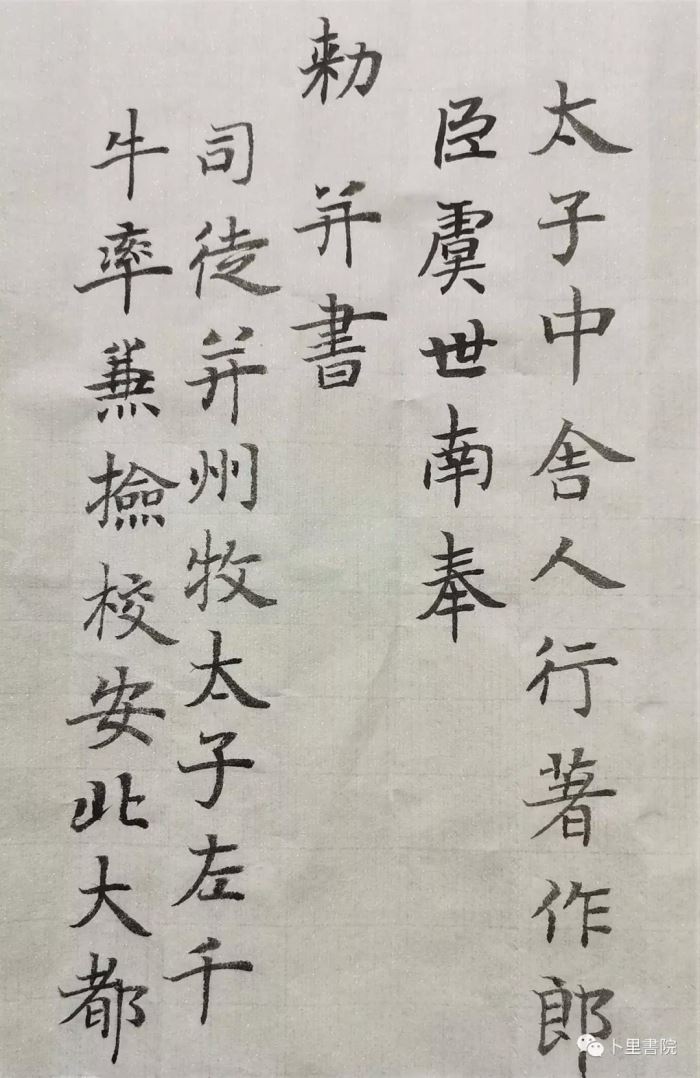 太子中舎人行著作郎
臣虞世南奉
勅并書
司徒并州牧太子左千
牛率兼撿校安北大都
卜里書院